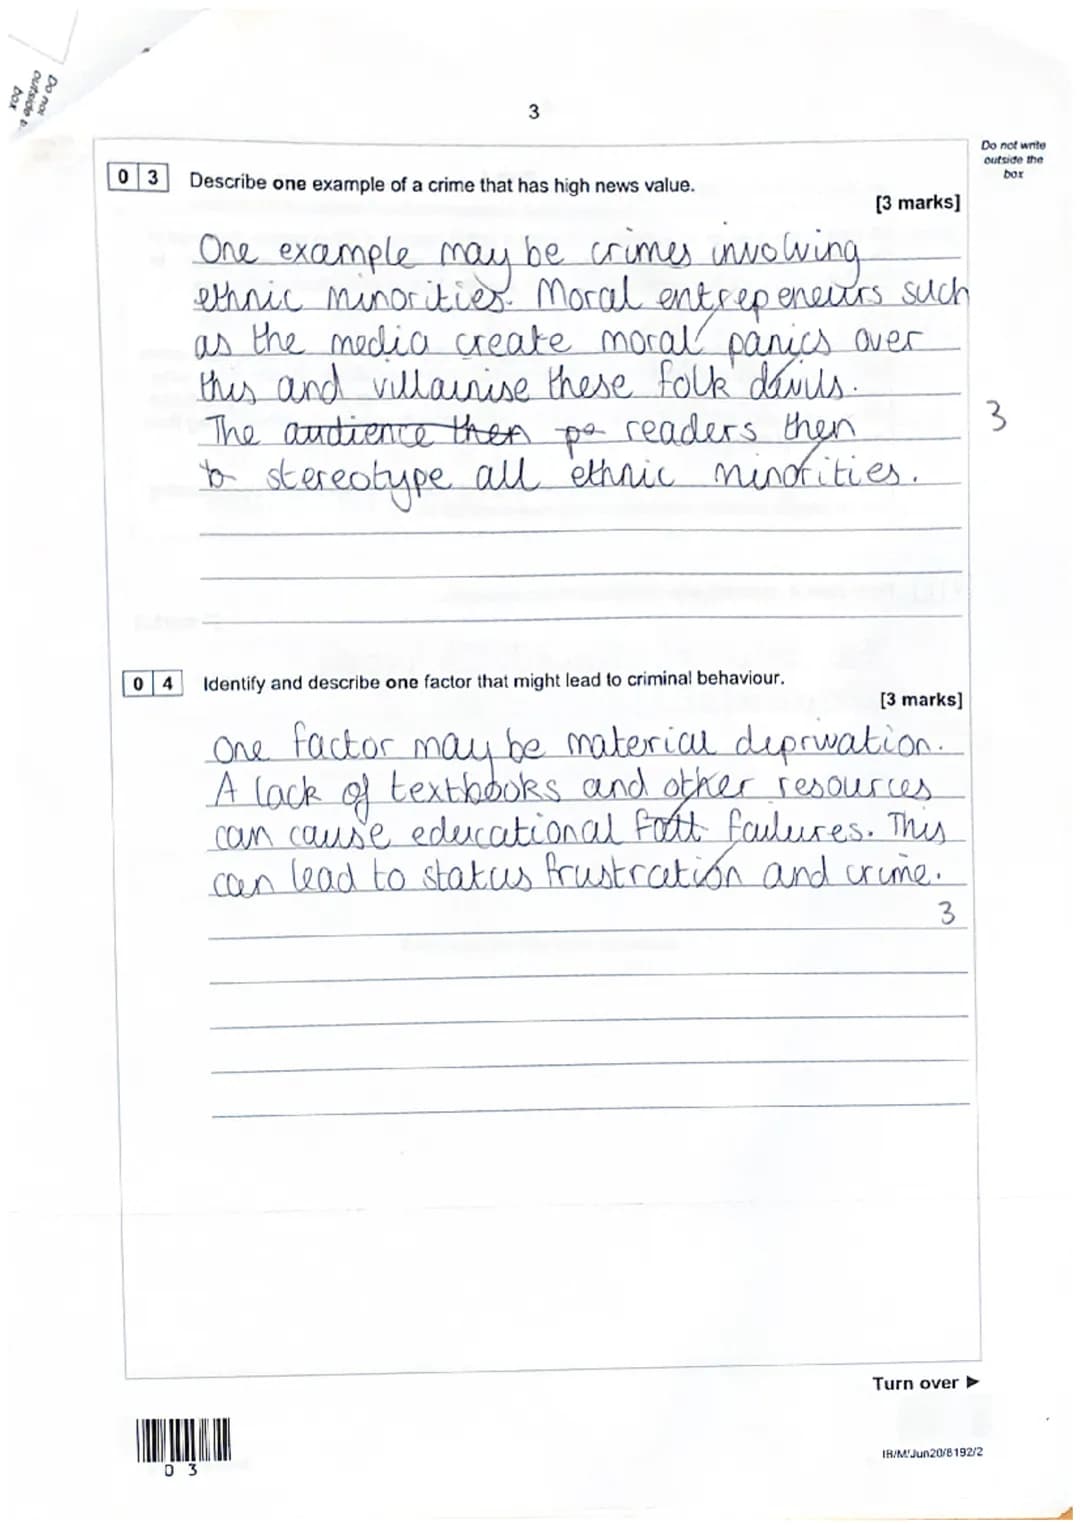 Do not
outside t
box
3
Do not write
outside the
box
0 3 Describe one example of a crime that has high news value.
[3 marks]
One example may be crimes involving
ethnic minorities. Moral entrepeneurs such
as the media create moral panics over
this and villainise these folk devils.
The audience then pe readers then
to stereotype all ethnic minorities.
3
0 4 Identify and describe one factor that might lead to criminal behaviour.
[3 marks]
One factor may be material deprivation.
A lack of textbooks and other resources
can cause educational fatt failures. This
can lead to status frustration and crime.
3
Turn over ►
0 3
IB/M/Jun20/8192/2